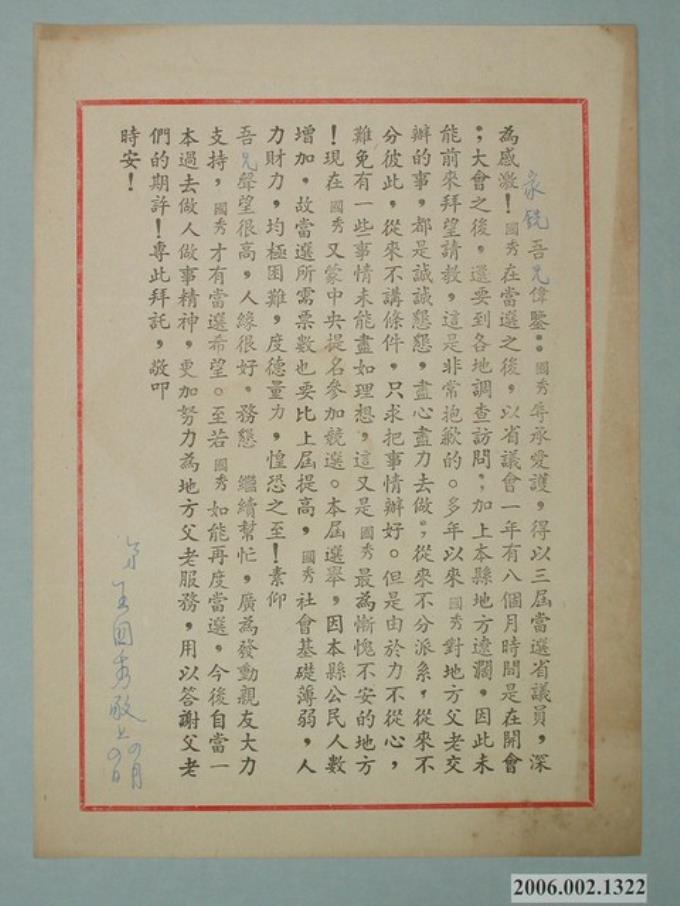 家銳吾兄偉鑒：國秀辱承愛護，得以三屆當選省議員，深
為感激！國秀在當選之後，以省議會一年有八個月時間是在開會
；大會之後，還要到各地調查訪問；加上本縣地方遼濶，因此未
能前來拜望請教，這是非常抱歉的。多年以來國秀對地方父老交
辦的事，都是誠誠懇懇，盡心盡力去做。；從來不分派系，從來不
分彼此，從來不講條件，只求把事情辦好。但是由於力不從心，
難免有一些事情未能盡如理想，這又是國秀最為慚愧不安的地方
！現在國秀又蒙中央提名參加競選。本屆選舉，因本縣公民人數
增加，故當選所需票數也要比上屆提高，國秀社會基礎薄弱，人
力財力，均極困難，度德量力，惶恐之至！素仰
吾兄聲望很高，人緣很好，務懇 繼續幫忙，廣為發動親友大力
支持，國秀才有當選希望。至若國秀如能再度當選，今後自當一
本過去做人做事精神，更加努力為地方父老服務，用以答謝父老
們的期許！專此拜託，敬叩
時安！
弟王國秀敬上
月
日
2006.002.1322